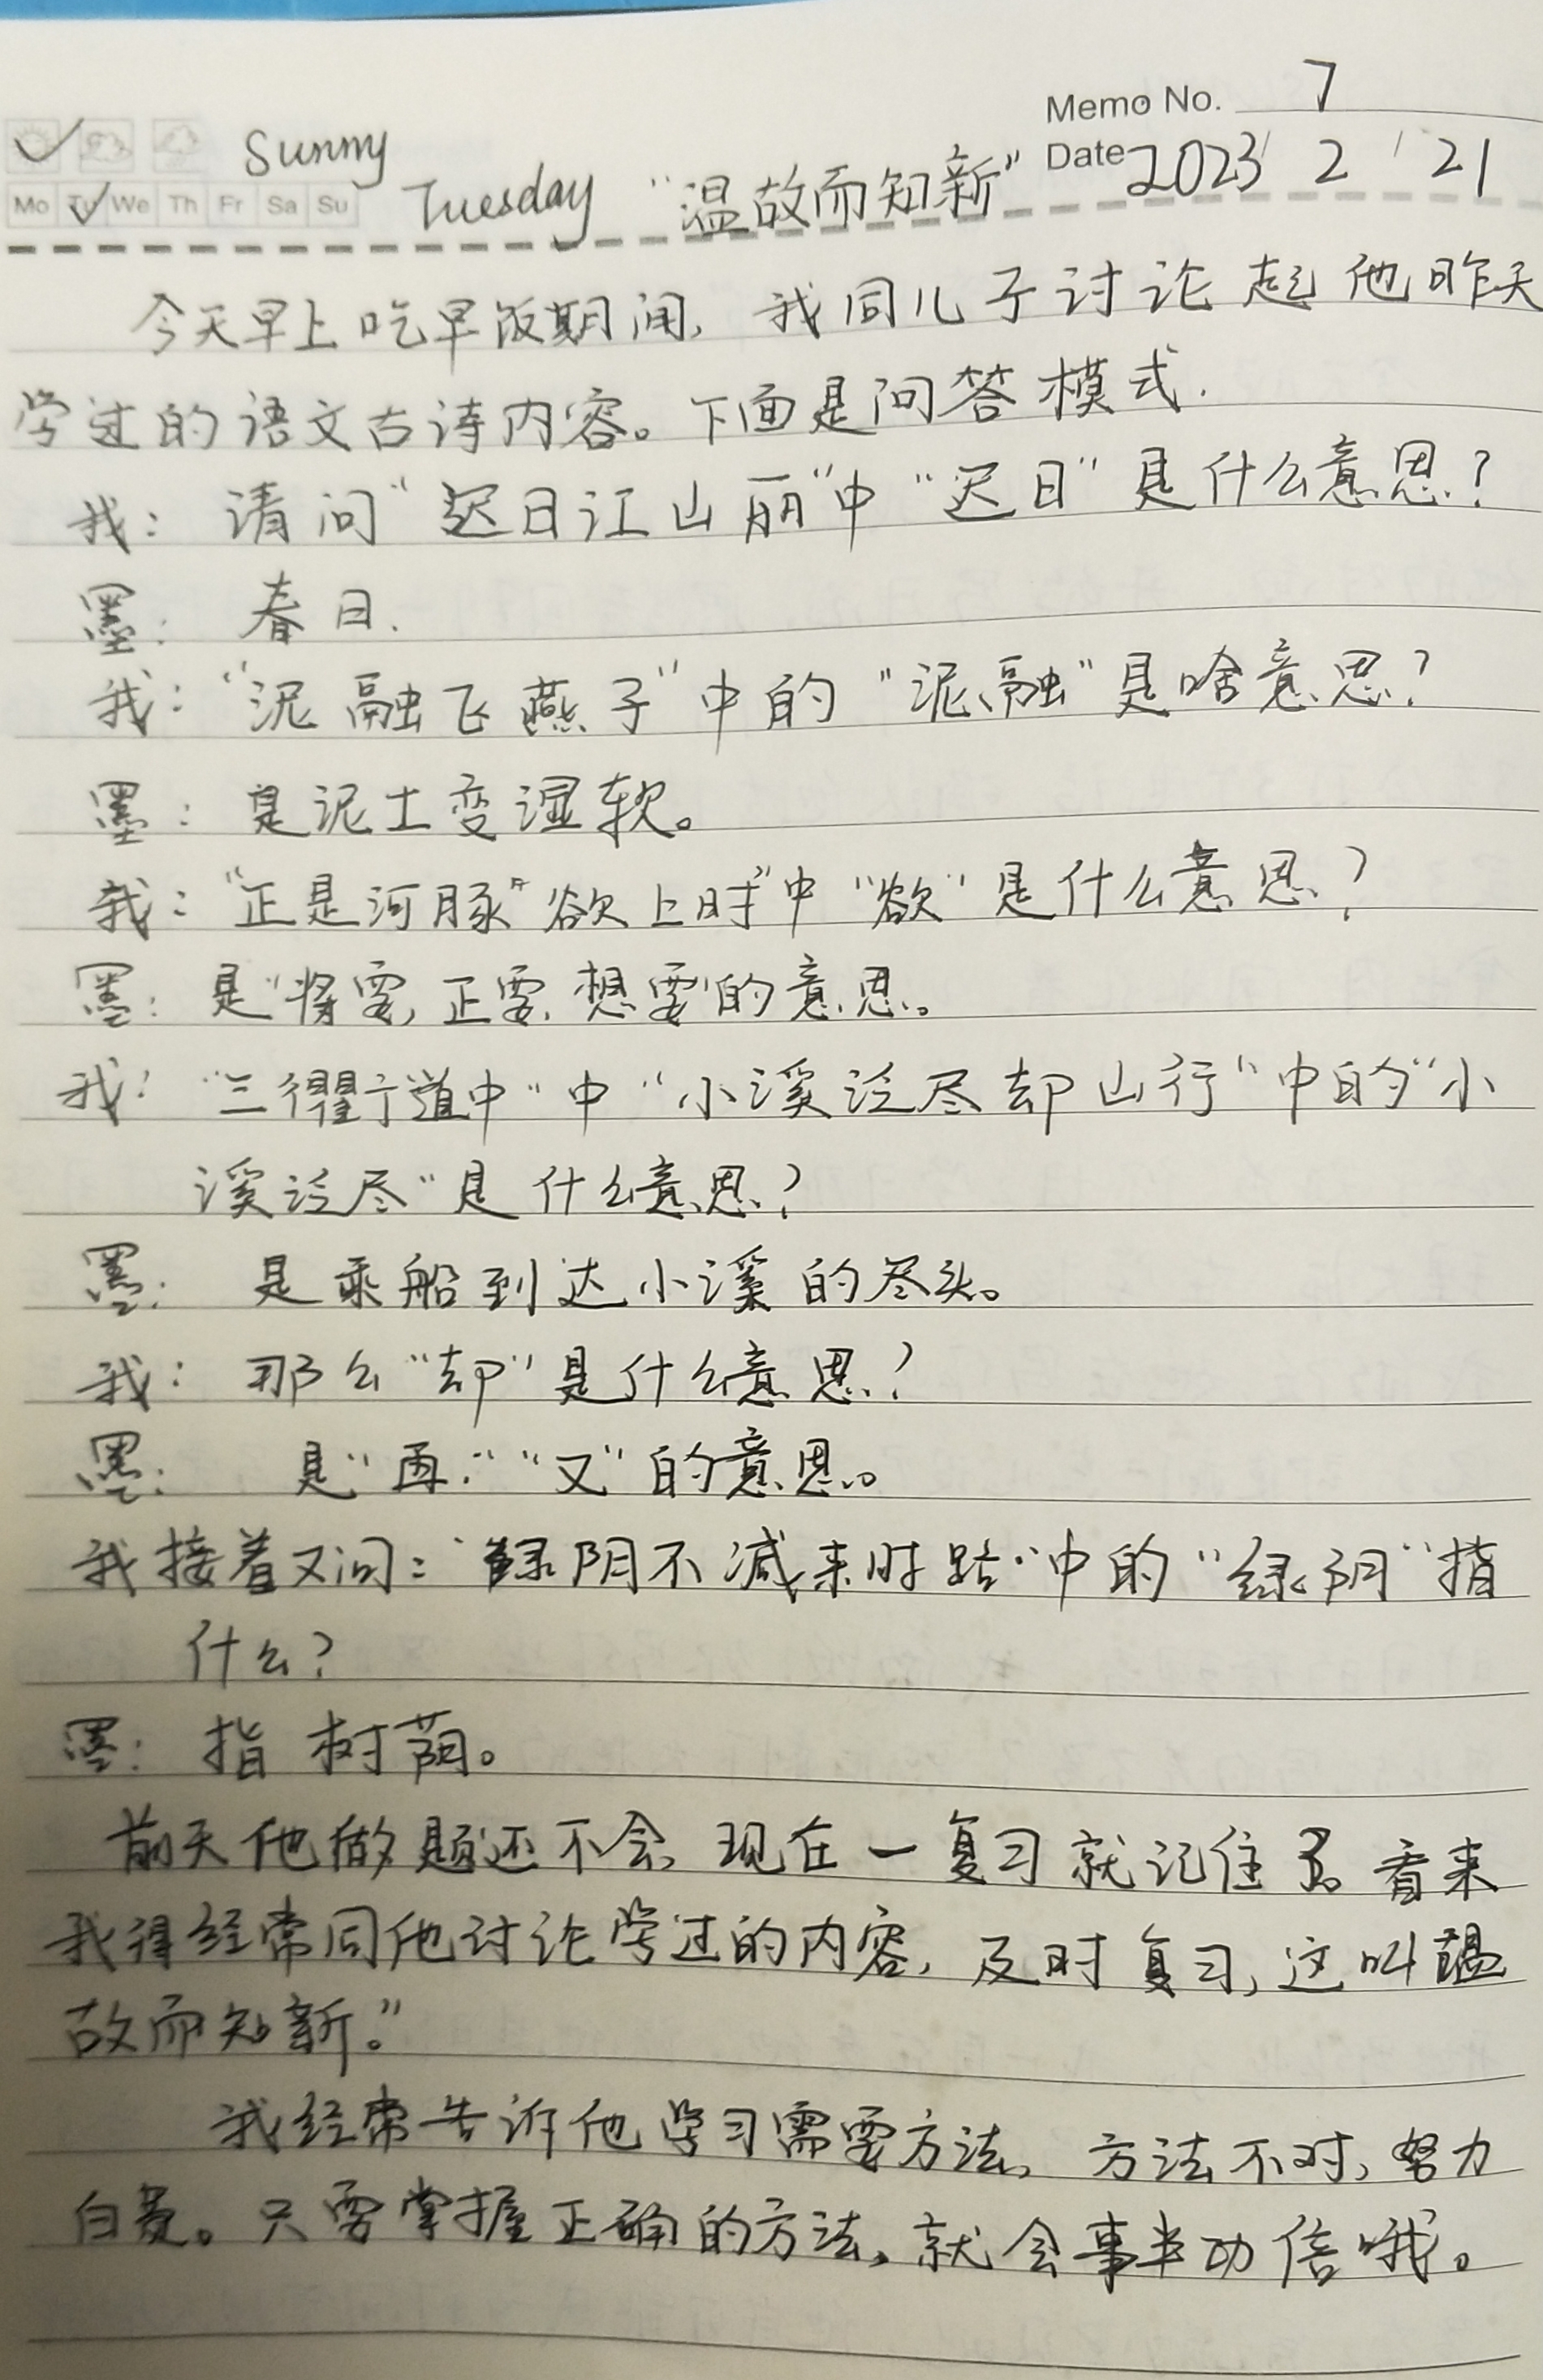 Memo No. 7
Sunny
Date 2023 / 2 / 21
Mo Tu We Th Fr Sa Su
Tuesday “温故而知新”
今天早上吃早饭期间, 我同儿子讨论起他昨天
学过的语文古诗内容。下面是问答模式.
我: 请问“迟日江山丽”中“迟日”是什么意思?
墨: 春日.
我:“泥融飞燕子”中的“泥融”是啥意思?
墨: 是泥土变湿软。
我:“正是河豚欲上时”中“欲”是什么意思?
墨: 是“将要, 正要, 想要”的意思。
我: “三衢道中”中“小溪泛尽却山行”中的“小
溪泛尽”是什么意思?
墨: 是乘船到达小溪的尽头。
我: 那么“却”是什么意思?
墨: 是“再”“又”的意思。
我接着又问:“绿阴不减来时路”中的“绿阴”指
什么?
墨: 指树荫。
前天他做题还不会, 现在一复习就记住了。看来
我得经常同他讨论学过的内容, 及时复习, 这叫“温
故而知新。”
我经常告诉他学习需要方法, 方法不对, 努力
白费。只要掌握正确的方法, 就会事半功倍哦。